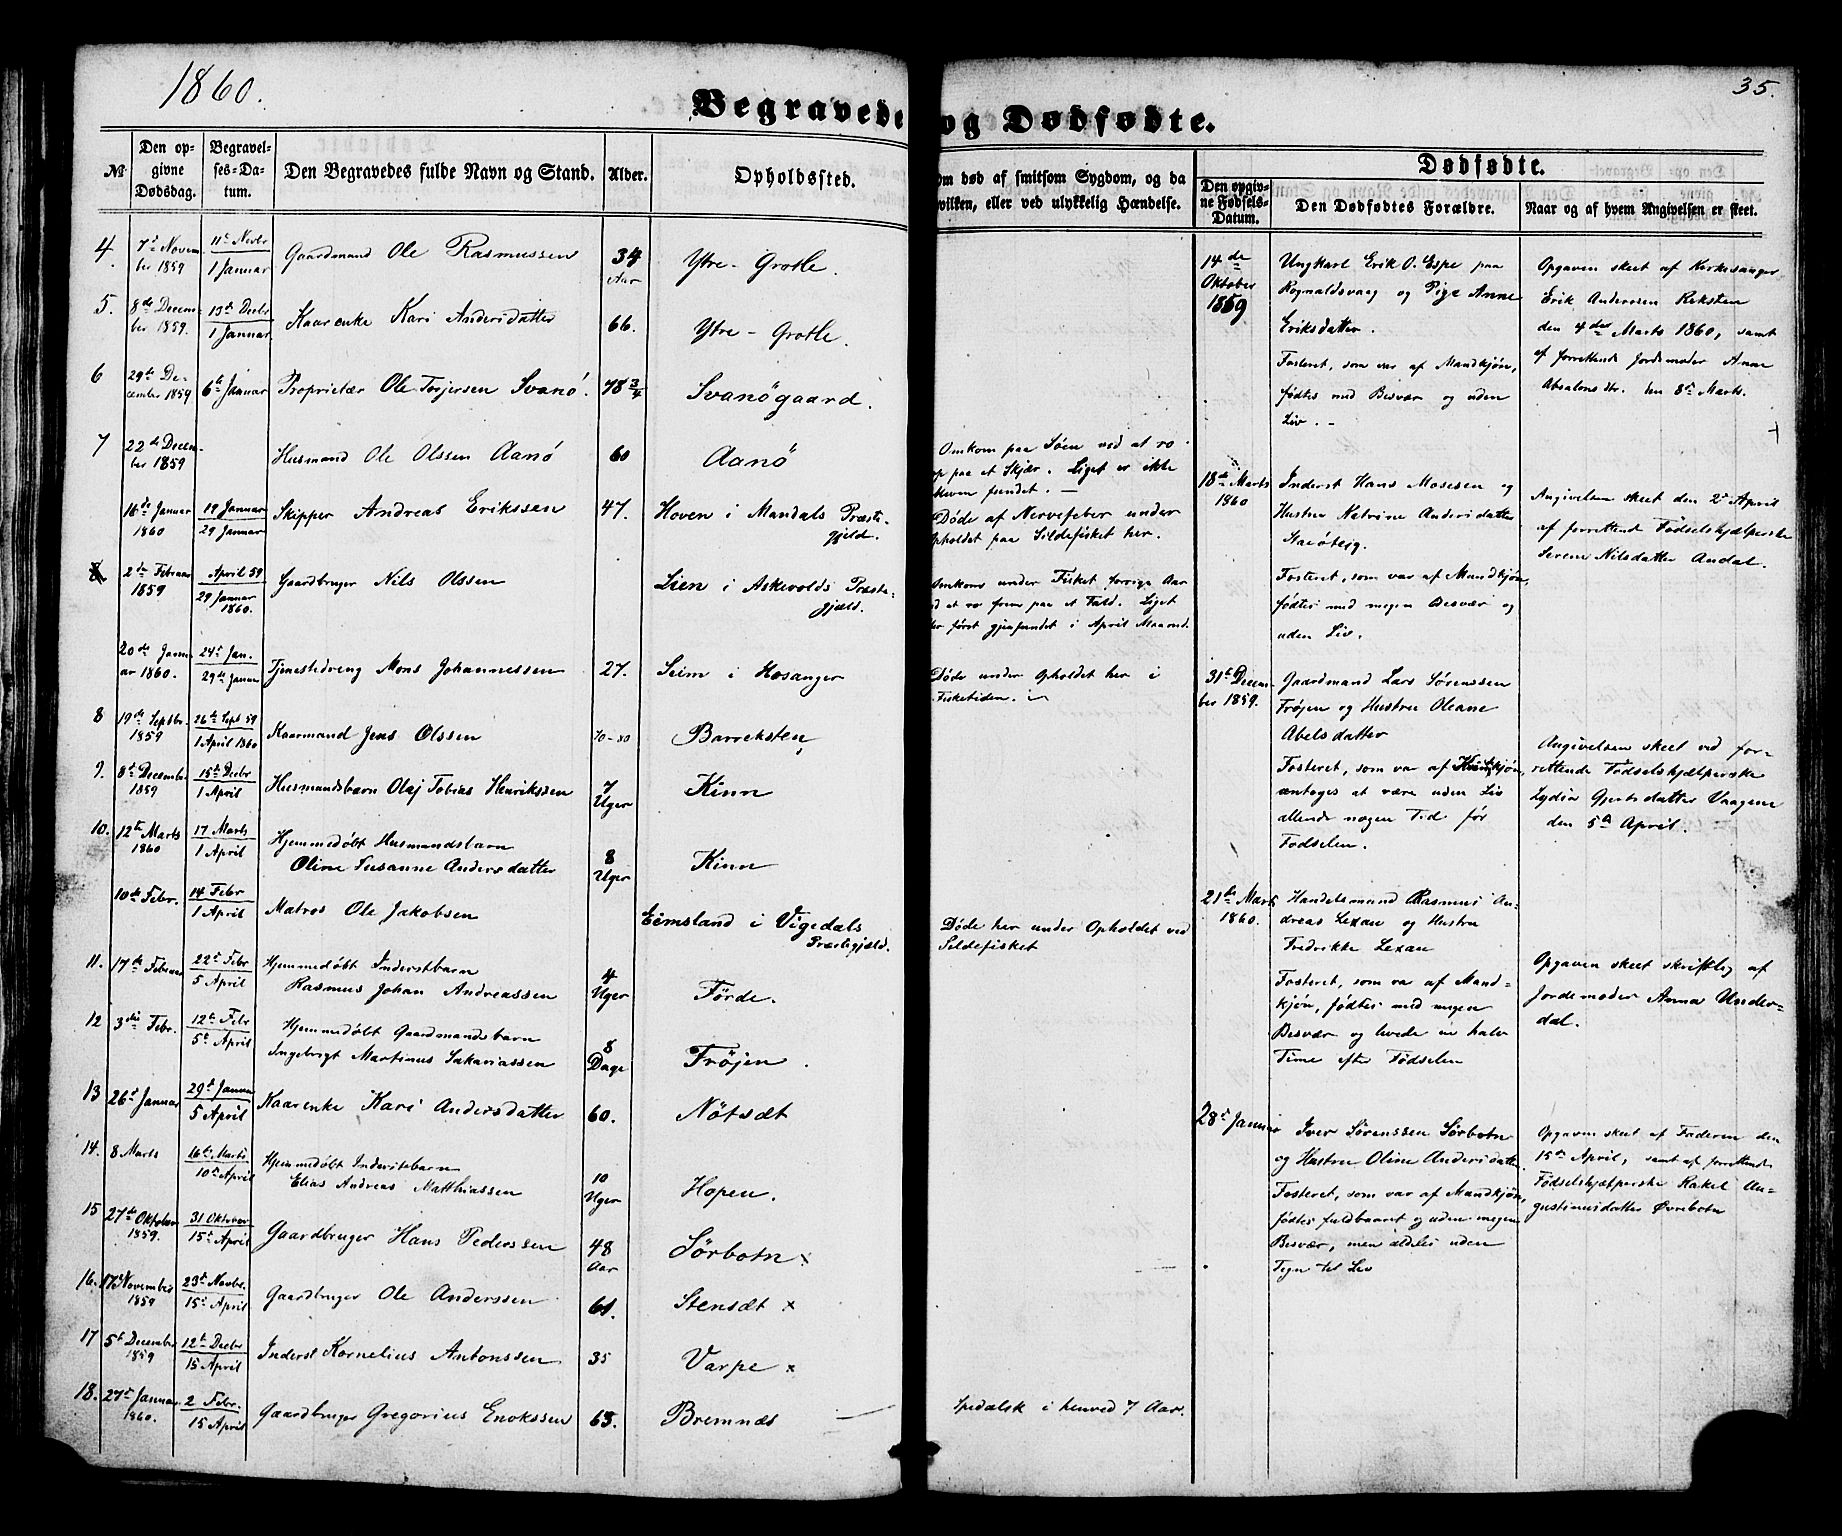 1860.
35.
Begravede og Dødfødte.
№
Den opgivne Dødsdag.
Begravelses-Datum.
Den Begravedes fulde Navn og Stand.
Alder.
Opholdssted.
Om død af smitsom Sygdom, og da
hvilken, eller ved ulykkelig Hændelse.
Dødfødte.
Den opgivne Fødsels-Datum.
Den Dødfødtes Forældre.
Naar og af hvem Angivelsen er skeet.
4. 7de November 1859 11te Novbr 1 Januar Gaardmand Ole Rasmussen 34 Aar Ytre-Grotle.
5. 8de December 1859. 13de Decbr 1 Januar Kaarenke Kari Andersdatter 66. Ytre-Grotle.
6 29de December 1859 6te Januar Proprietær Ole Torjersen Svanö. 78 3/4 Svanögaard.
7 22de December 1859 Husmand Ole Olssen Aanö 60 Aanö
Omkom paa Söen ved at ro
op paa et Skjær. Liget er ikke
bleven fundet. —
16de Januar 1860 19 Januar 29 Januar Skipper Andreas Erikssen 47. Hoven i Mandals Præstegjeld.
Døde af Nervefeber under
Opholdet paa Sildefisket her.
2de Februar 1859 April 59 29 Januar 1860. Gaardbruger Nils Olssen Lien i Askevolds Præstegjæld.
Omkom under Fisket forrige Aar
ved at ro frem paa et Fald. Liget
er først gjenfundet i April Maaned.
20de Januar 1860. 24de Jan. 29de Januar Tjenestedreng Mons Johannessen 27. Seim i Hosanger
Døde under Opholdet her i
Fisketiden.
8 19de Septbr. 1859 26de Sept 59 1 April 1860 Kaarmand Jens Olssen 70-80 Barreksten
9. 8de December 1859 15de Decbr 1 April Husmandsbarn Olaj Tobias Henrikssen 7 Uger Kinn
10. 12te Marts 1860 17 Marts 1 April Hjemmedøbt Husmandsbarn
Oline Susanne Andersdatter 8 Uger Kinn
10de Febr. 14 Febr 1 April Matros Ole Jakobsen Eimsland i Vigedals Præstegjæld.
Døde her under Opholdet ved
Sildefisket
11. 17de Februar 22de Febr 5 April Hjemmedøbt Inderstbarn
Rasmus Johan Andreassen 4 Uger Förde.
12 3die Febr. 12te Febr 5te April Hjemmedøbt Gaardmandsbarn
Ingebrigt Martinus Sakariassen 8 Dage Fröjen.
13 26de Januar 29de Januar 5 April Kaarenke Kari Andersdatter 60. Nötsæt
14. 8 Marts 16te Marts 10de April Hjemmedøbt Inderstebarn
Elias Andreas Matthiassen 10 Uger Hopen.
15 27de Oktober 1859. 31 Oktober 15de April Gaardbruger Hans Pederssen 48 Aar Sörbotn ×
16. 17de November 1859 23de Novbr. 15de April Gaardbruger Ole Anderssen 61. Stensæt ×
17 5te December 1859 12te Decbr 15 April Inderst Kornelius Antonssen 35 Varpe ×
18. 27de Januar 1860. 2 Febr. 15 April Gaardbruger Gregorius Enokssen 63. Bremnæs —
Spedalsk i henved 7 Aar.
14de Oktober 1859
Ungkarl Erik O. Espe paa
Rognaldsvaag og Pige Anne
Eriksdatter.
Fosteret, som var af Mandkjøn,
fødtes med Besvær og uden
Liv. -
Opgaven skeet af Kirkesanger
Erik Andersen Reksten
den 4de Marts 1860, samt
af forrettende Jordemoder Anne
Absalonsdtr. den 8de Marts.
18de Marts 1860
Inderst Hans Mosesen og
Hustru Katrine Andersdatter
Fosteret, som var af Mandkjøn,
fødtes med megen Besvær og
uden Liv.
Angivelsen skeet den 2de April
af forrettende Fødselshjælperske
Serene Nilsdatter Andal.
31te December 1859.
Gaardmand Lars Sörenssen
Fröjen og Hustru Oleane
Abelsdatter
Fosteret, som var af Kvindkjøn,
antages at være uden Liv
allerede nogen Tid før
Fødselen.
Angivelsen skeet ved for-
rettende Fødselshjælperske
Lydia Gjertsdatter Vaagene
den 5te April.
21de Marts 1860.
Handelsmand Rasmus An-
dreas Lexau og Hustru
Fredrikke Lexau
Fosteret, som var af Mand-
kjøn, fødtes med megen
Besvær og levede en halv
Time efter Fødselen
Opgaven skeet skriftlig af
Jordemoder Anna Under-
dal.
28de Januar
Iver Sörenssen Sörbotn
og Hustru Oline Andersdatter.
Fosteret, som var af Mandkjøn,
fødtes fuldbaaret og uden megen
Besvær, men aldeles uden
Tegn til Liv
Opgaven skeet af Faderen den
15de April, samt af forrettende
Fødselshjælperske Rakel Au-
gustinusdatter Øvrebotn